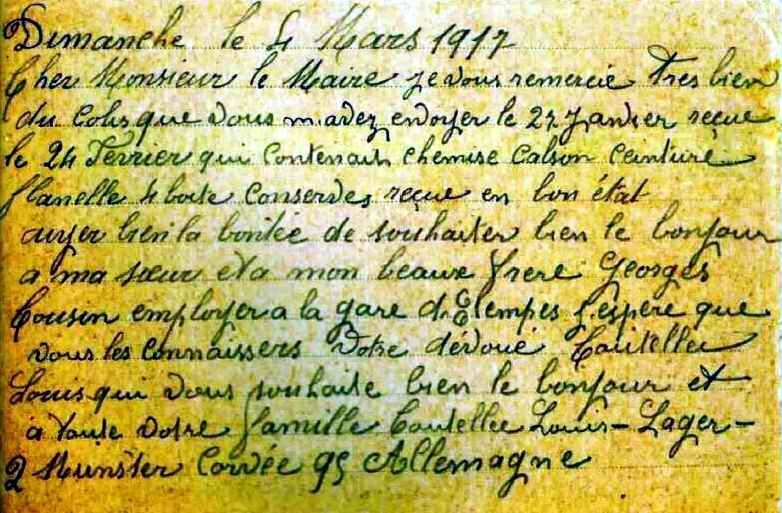 Dimanche le 4 Mars 1917
Cher Monsieur le Maire je vous remercie Tres bien
du Colis que vous m.avez envoyer le 27 Janvier reçue
le 24 Fevrier qui Contenait chemise Calson Ceinture
flanelle 4 boite Conserves reçue en bon état
auyer bien la bontée de souhaiter bien le bonjour
a ma sœur et a mon beaux frere Georges
Cousin employer a la gare d.Etempes j.espere que
vous les Connaissers Votre dévoué Coutellec
Louis qui vous souhaite bien le bonjour et
a toute votre famille Coutellec Louis - Lager -
2 Munster Corvée 95 Allemagne